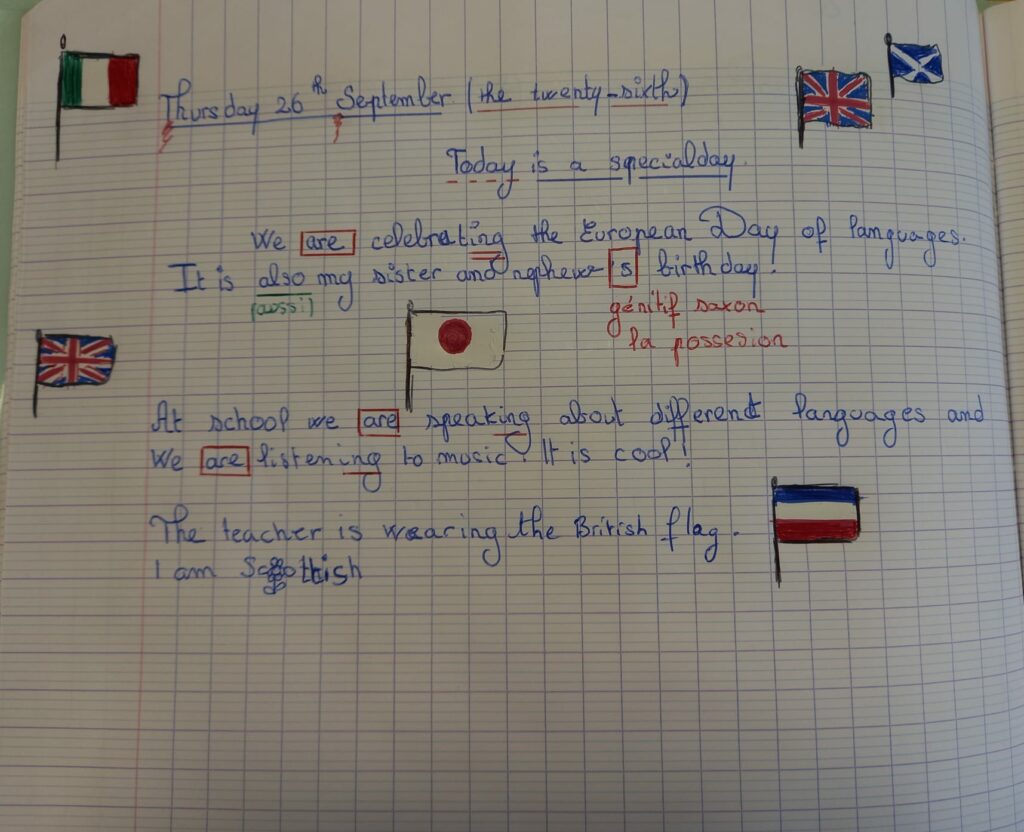 Thursday 26th September (the twenty-sixth)
Today is a special day.
We are celebrating the European Day of languages.
It is also my sister and nephew's birthday!
(aussi)
génitif saxon
la possesion
At school we are speaking about different languages and
we are listening to music. It is cool!
The teacher is wearing the British flag.
I am Scottish